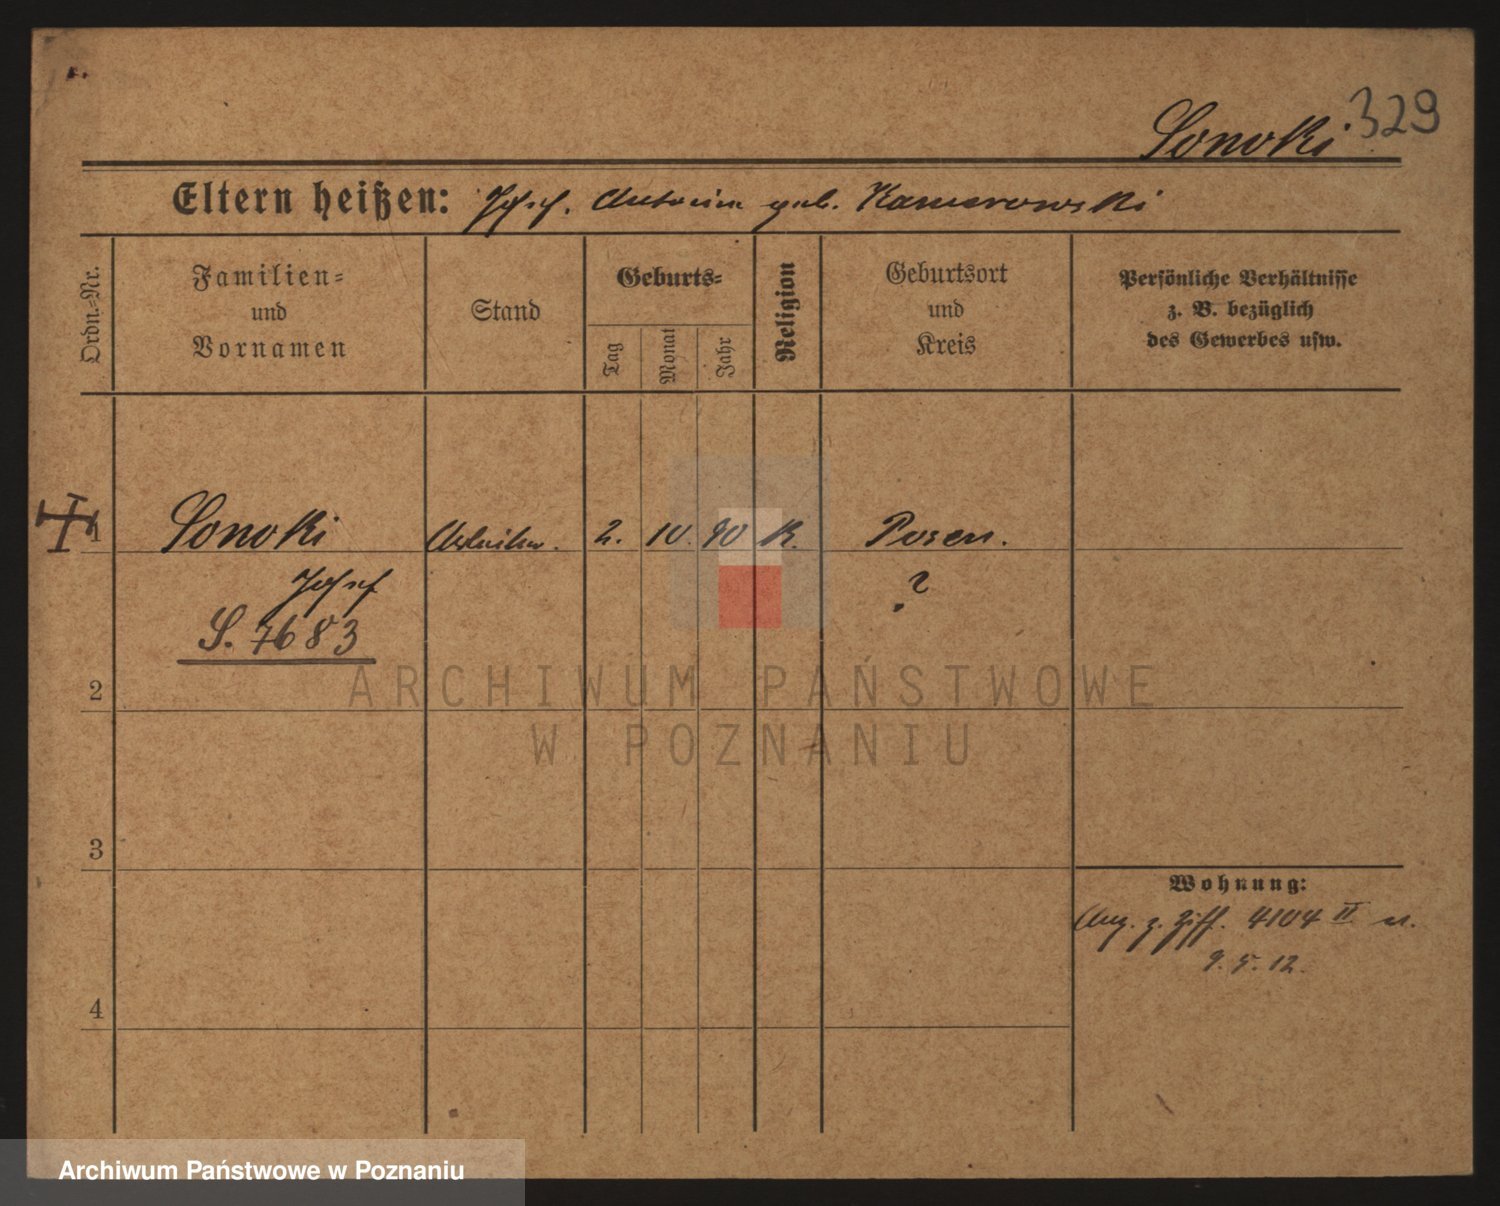 Sonoki. 329
Eltern heißen: Josef. Antonina geb. Kamerowski
Ordn.-Nr.
Familien-
und
Vornamen
Stand
Geburts-
Tag
Monat
Jahr
Religion
Geburtsort
und
Kreis
Persönliche Verhältnisse
z. B. bezüglich
des Gewerbes usw.
1 Sonoki Arbeiter. 2. 10. 90 K. Posen.
Josef ?
S. 7683
2
ARCHIWUM PAŃSTWOWE
W POZNANIU
3
Wohnung:
Ang. z. Ziff. 4104 II
9. 5. 12.
4
Archiwum Państwowe w Poznaniu